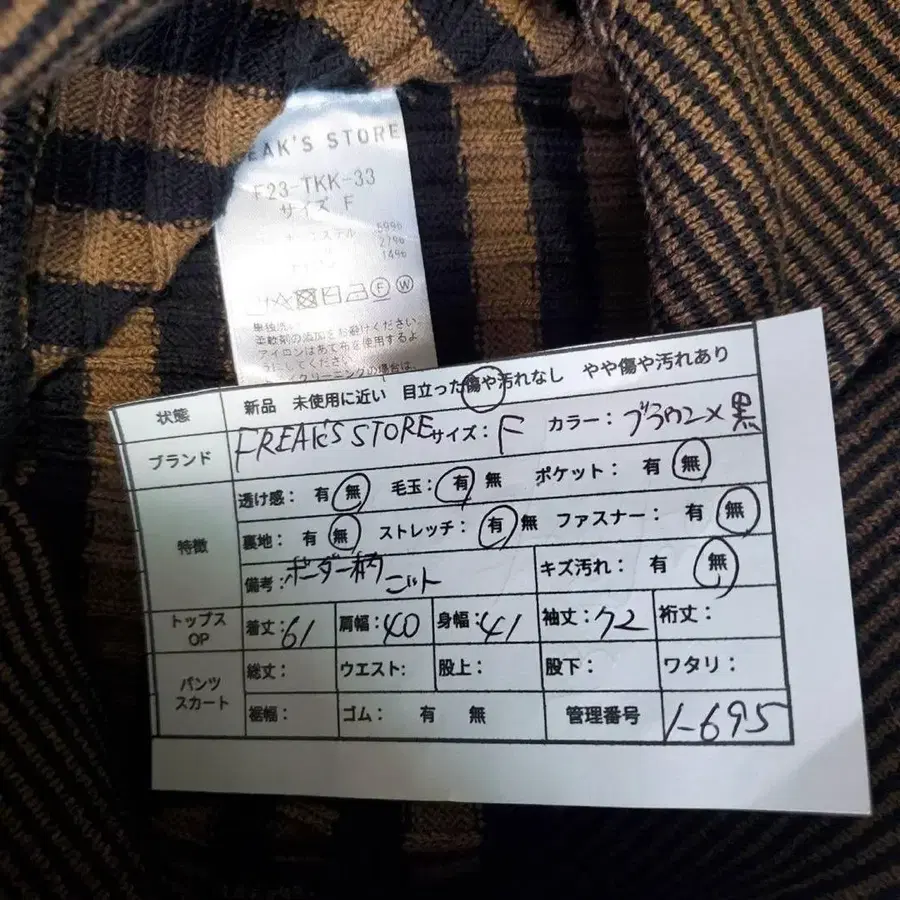 EAK'S STORE
F23-TKK-33
サイズ F
59%
27%
14%
柔軟剤の添加をお避けください
アイロンはあて布を使用するよ
うにしてください
クリーニングの場合は、
状態 新品 未使用に近い 目立った傷や汚れなし やや傷や汚れあり
ブランド FREAK'S STORE サイズ: F カラー: ブラウン×黒
特徴
透け感: 有 無 毛玉: 有 無 ポケット: 有 無
裏地: 有 無 ストレッチ: 有 無 ファスナー: 有 無
備考: ボーダー柄 ニット キズ汚れ: 有 無
トップス OP 着丈: 61 肩幅: 40 身幅: 41 袖丈: 72 裄丈:
パンツ スカート
総丈: ウエスト: 股上: 股下: ワタリ:
裾幅: ゴム: 有 無 管理番号 1-695